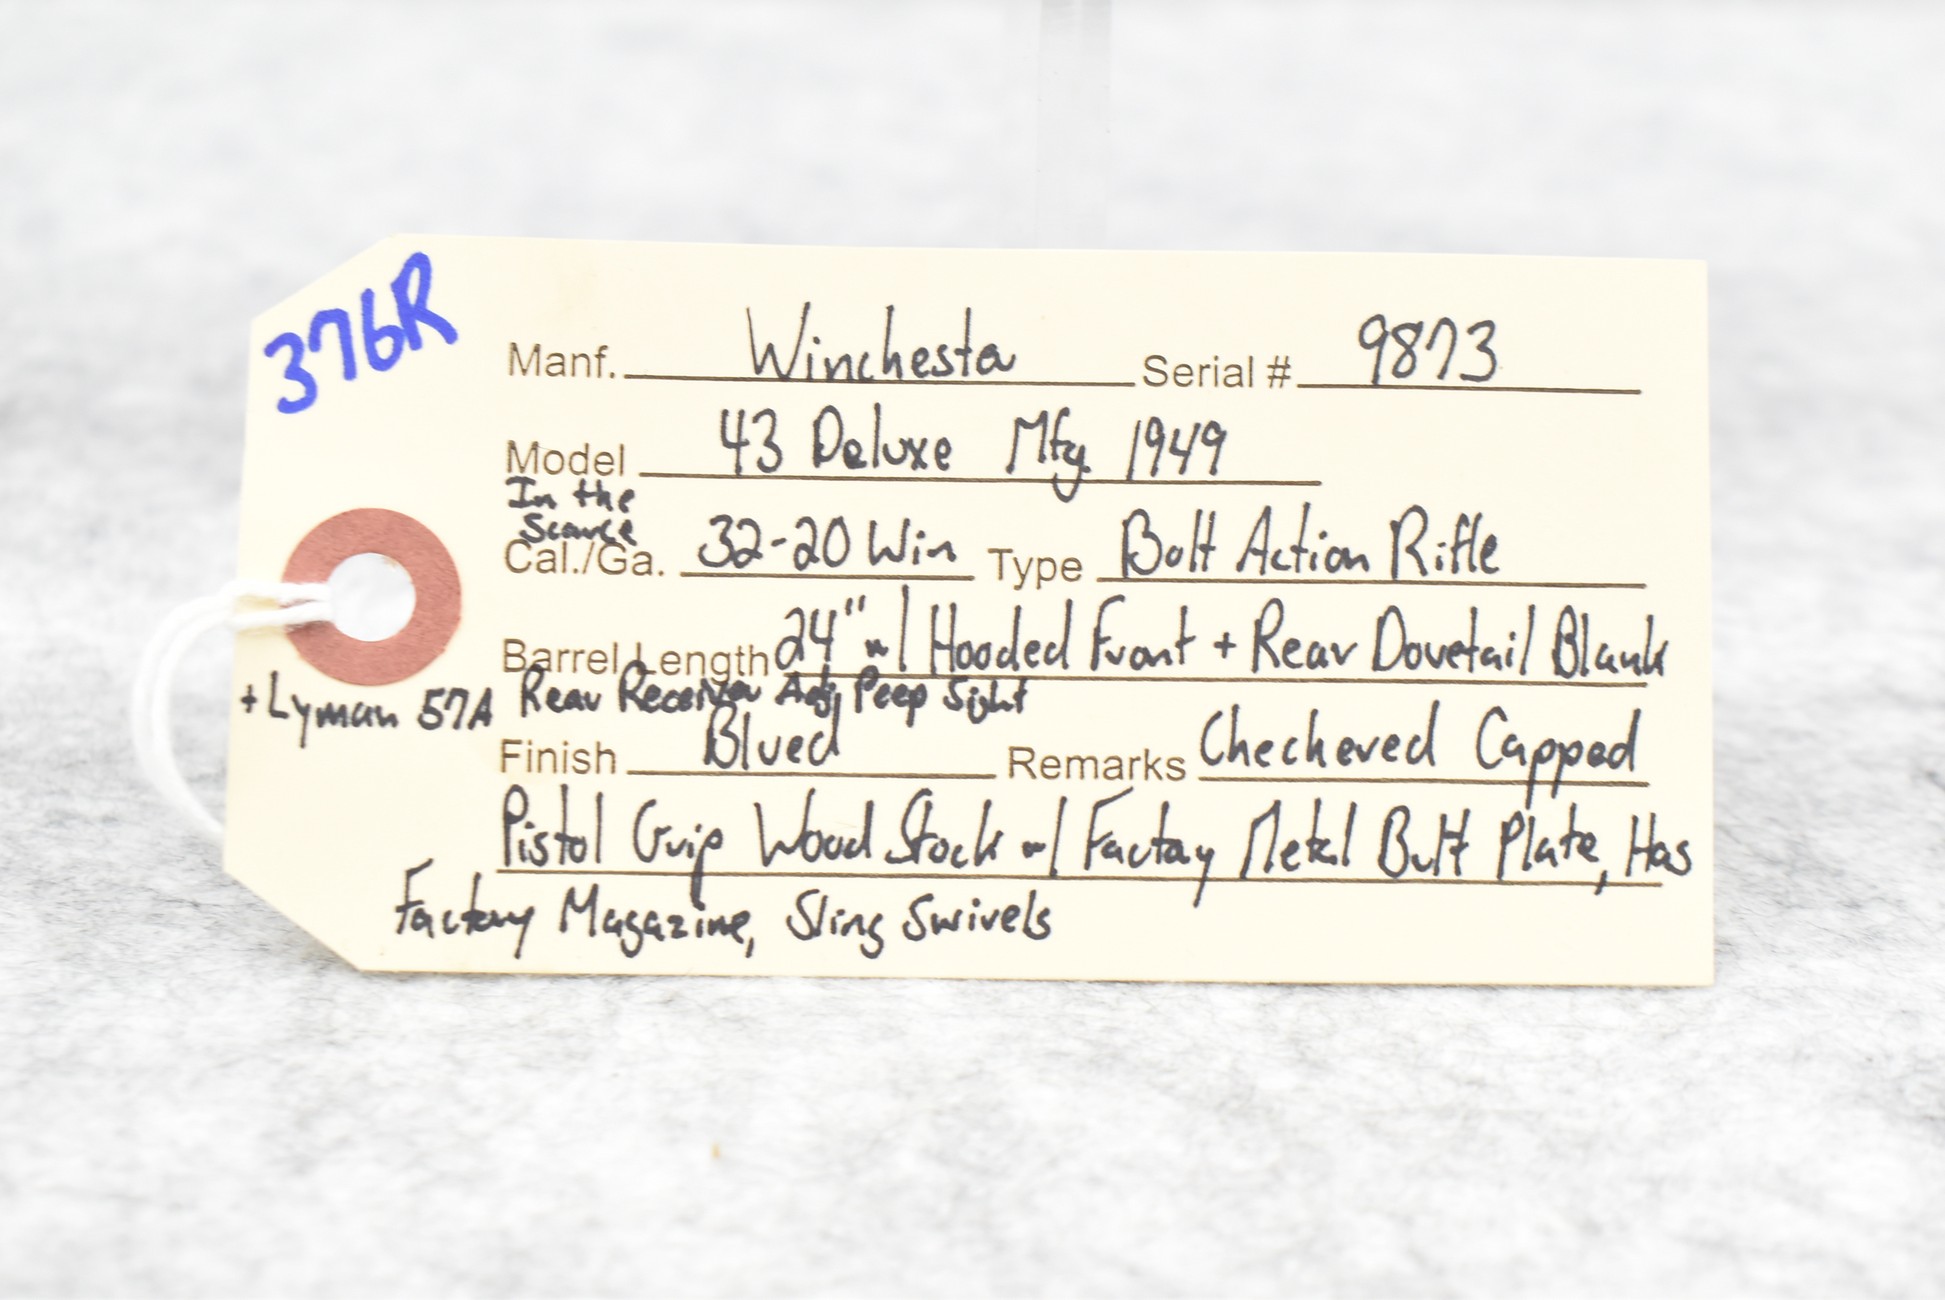 376R
Manf. Winchester Serial # 9873
Model 43 Deluxe Mfg. 1949
In the
Scarce
Cal./Ga. 32-20 Win Type Bolt Action Rifle
Barrel Length 24" w/ Hooded Front + Rear Dovetail Blank
+ Lyman 57A Rear Receiver Adj. Peep Sight
Finish Blued Remarks Checkered Capped
Pistol Grip Wood Stock w/ Factory Metal Butt Plate, Has
Factory Magazine, Sling Swivels